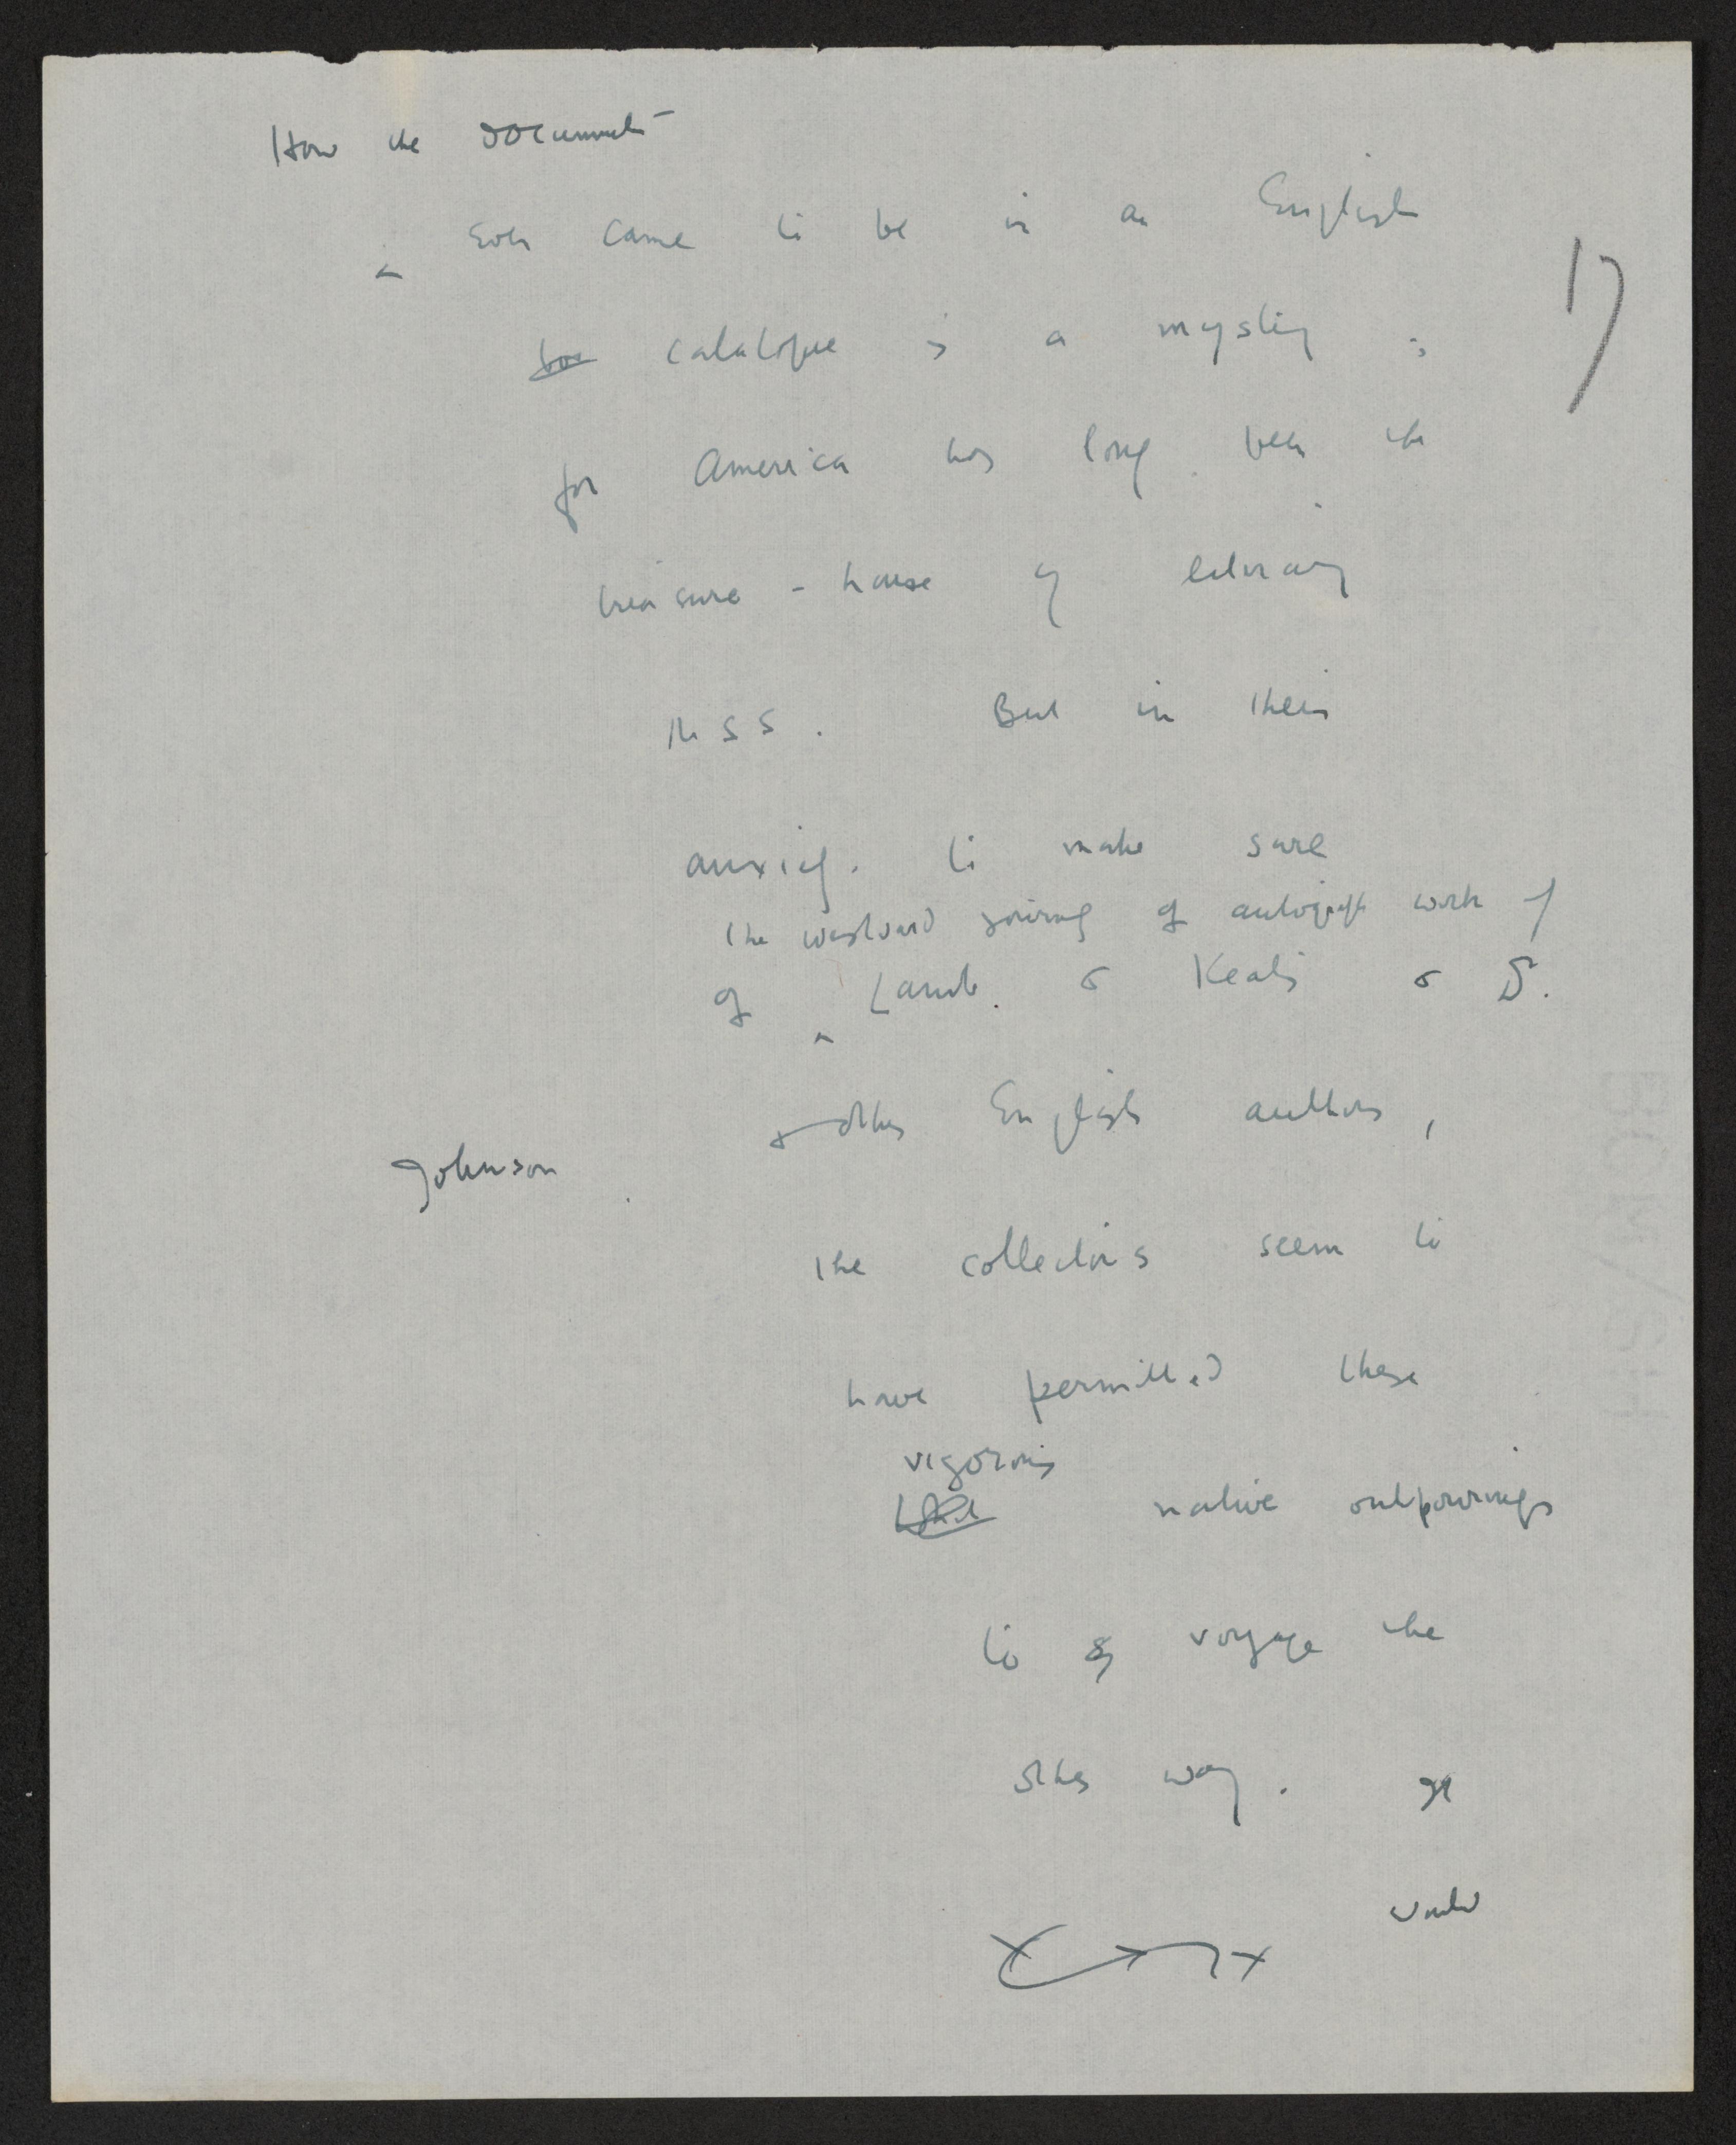 How the documents
ever came to be in an English
17
catalogue is a mystery;
for America has long been the
treasure-house of literary
MSS. But in their
anxiety to make sure
the westward of autograph work of
of Lamb & Keats & D.
& other English authors,
Johnson
the collectors seem to
have permitted these
vigorous
native outpourings
to voyage the
other way. It
would